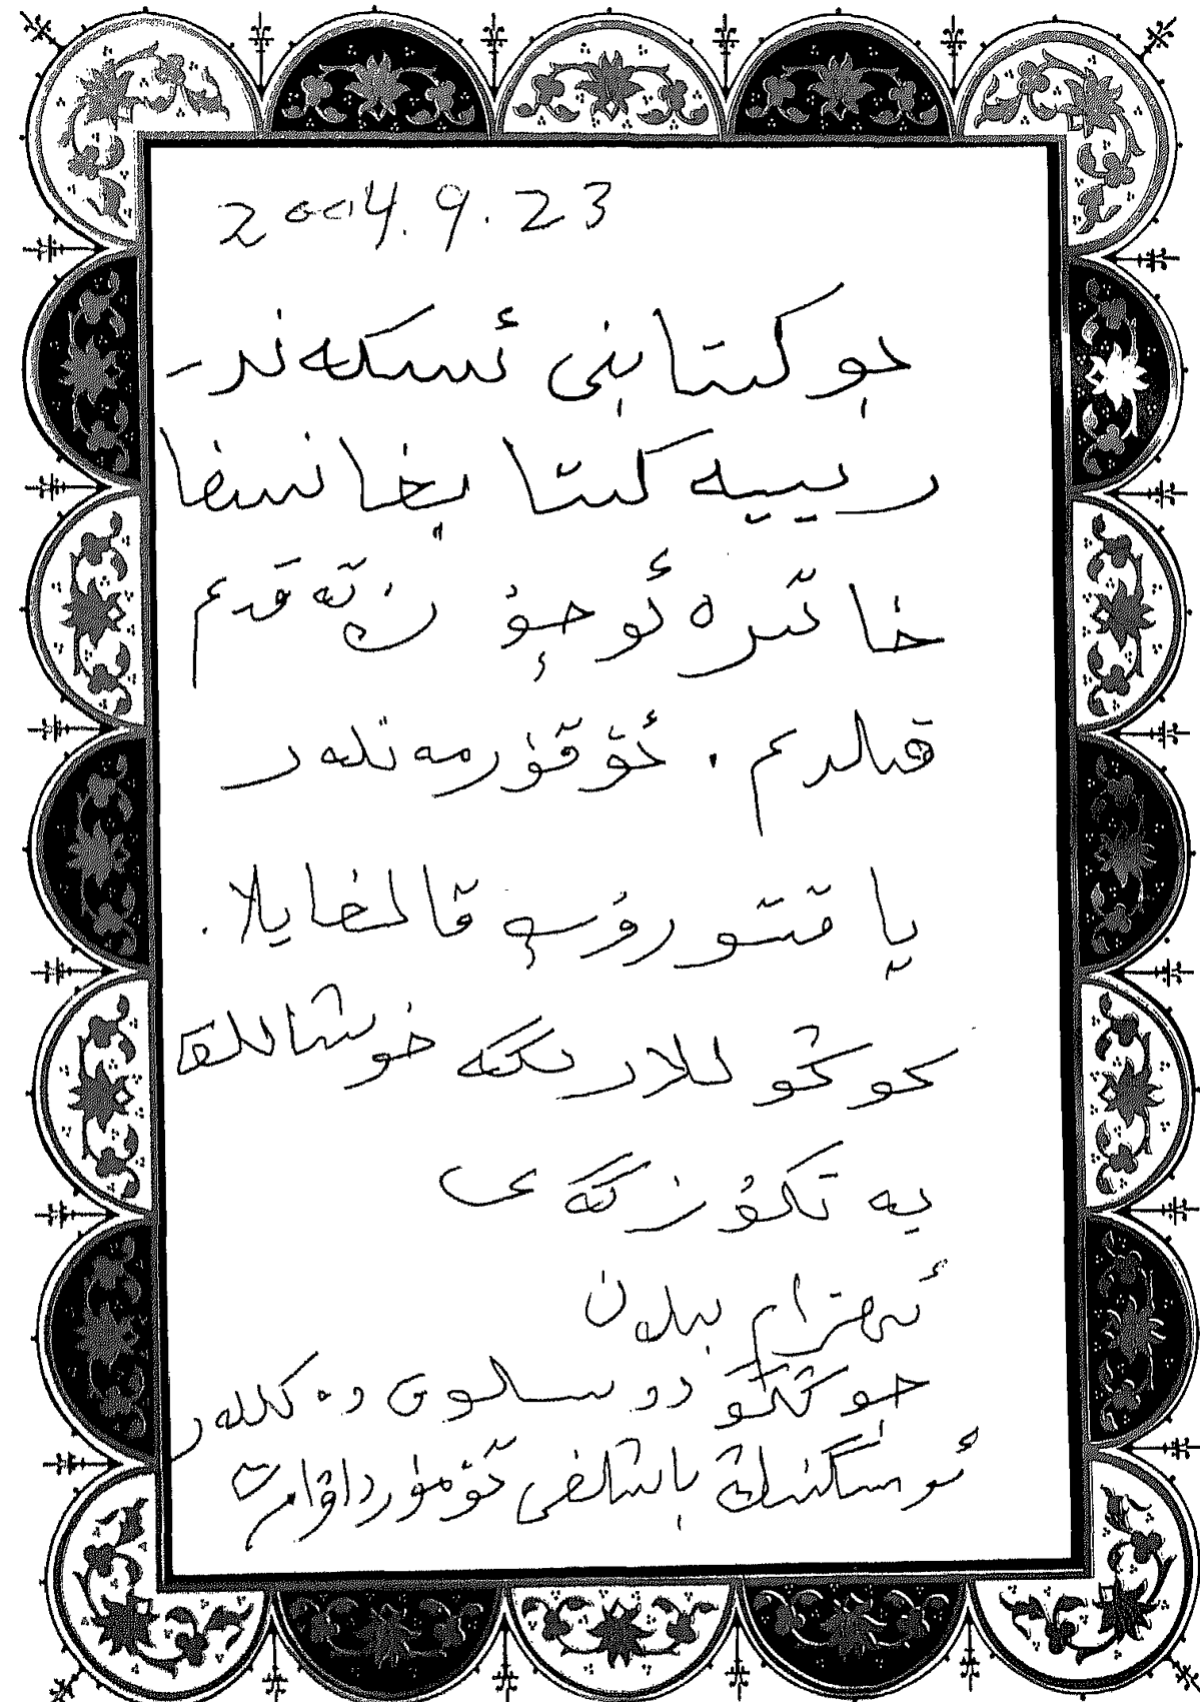 2004.9.23
بو كىتابنى ئىسكەندە-
رىييە كىتابخانىسىغا
خاتىرە ئۈچۈن تەقدىم
قىلدىم. ئوقۇرمەنلەر
ياقتۇرۇپ قالغايلا.
كۆڭۈللارىگە خوشاللىق
يەتكۈزگەي
ئېھتىرام بىلەن
جۇڭگو دوسلۇق ۋەكىللەر
ئۆمىكىنىڭ باشلىقى تۆمۈر داۋامەت